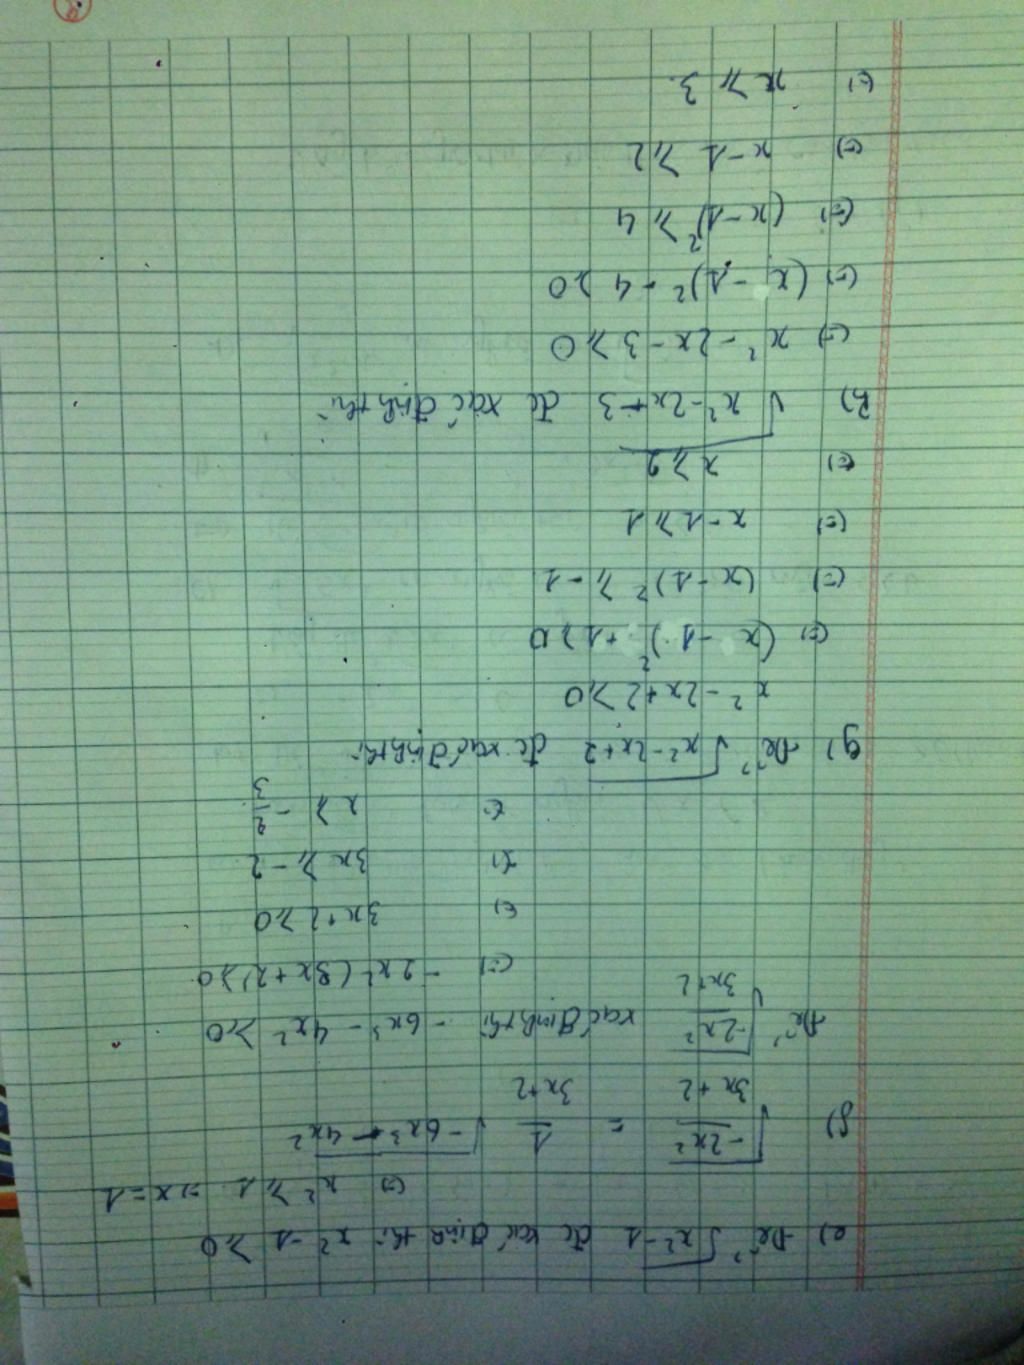 e) Để √x²-1 đc xác định thì x² - 1 ⩾ 0
(=) x² ⩾ 1 => x = 1
f) √(-2x²/3x+2) = 1/3x+2 √-6x³ - 4x²
Để √(-2x²/3x+2) xác định thì -6x³ - 4x² ⩾ 0
(=) -2x² (3x+2) ⩾ 0
(=) 3x+2 ⩾ 0
(=) 3x ⩾ -2
(=) x ⩾ -2/3
g) Để √x²-2x+2 đc xác định thì
x² - 2x+2 ⩾ 0
(=) (x - 1)² + 1 ⩾ 0
(=) (x-1)² ⩾ -1
(=) x-1 ⩾ 1
(=) x ⩾ 2
h) √x²-2x-3 đc xác định thì
(=) x² - 2x - 3 ⩾ 0
(=) (x - 1)² - 4 ⩾ 0
(=) (x-1)² ⩾ 4
(=) x-1 ⩾ 2
(=) x ⩾ 3.